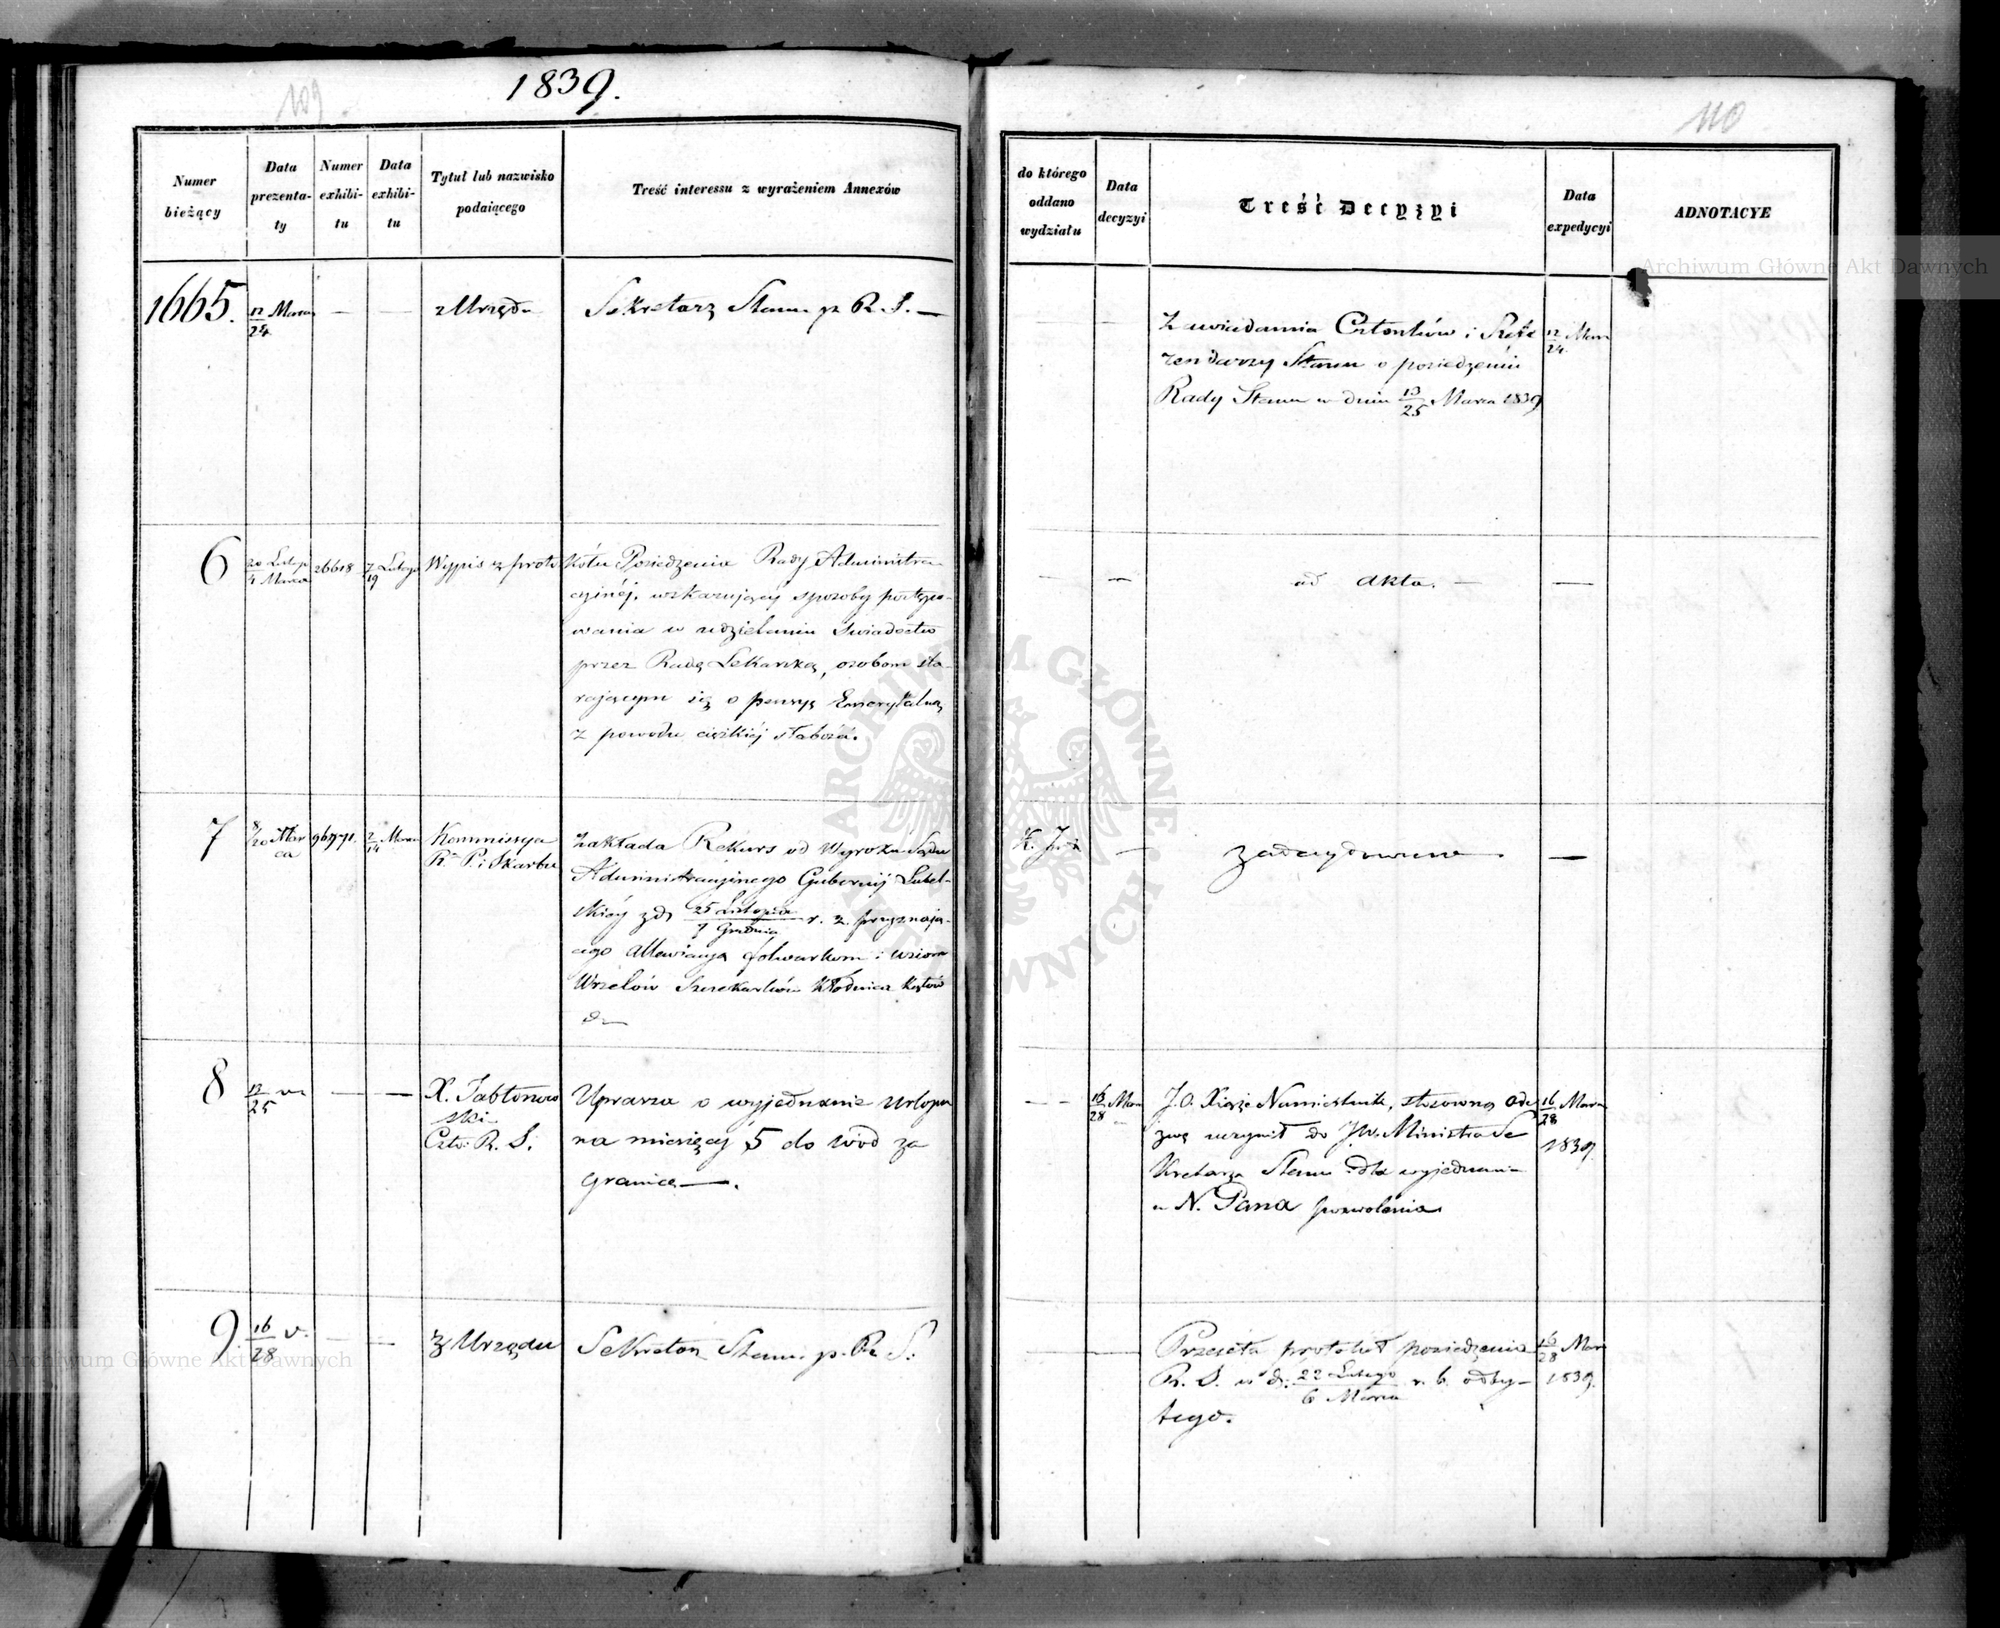 109
1839.
Numer bieżący
Data prezenta-ty
Numer exhibi-tu
Data exhibi-tu
Tytuł lub nazwisko podaiącego
Treść interessu z wyrażeniem Annexów
1665.
12/24 Marca
— —
z Urzędu
Sekretarz Stanu pr R. S. —
6
20 Lutego / 4 Marca
26618
7/19 Lutego
Wypis z proto
kółu Posiedzenia Rady Administra
cyjnéj, wskazujący sposoby postępo-
wania w udzielaniu świadectw
przez Radę Lekarską, osobom sta-
rającym się o pensyę Emerytalną
z powodu ciężkiéj słabości.
7
8/20 Mar
ca
2/14 Marca
Kommissya
R. P. i Skarbu
zakłada Rekurs od Wyroku Sądu
Administracyjnego Gubernij Lubel-
skiéj z d. 25 Listopada / 7 Grudnia r. z. przyznają-
cego allewiacyą folwarkom i wsiom
Wrzelów Szczekarków Kłodnica
8
13/25 "
— —
X. Jabłonow
ski
Czło: R. S.
Uprasza o wyjednanie urlopu
na miesięcy 5 do wód za
granicę —.
9.
16/28 v.
— —
Z Urzędu
Sekretarz Stanu p. R. S.
110
do którego oddano wydziału
Data decyzyi
Treść Decyzyi
Data expedycyi
ADNOTACYE
— —
Zawiadamia Członków i Refe
rendarzy Stanu o posiedzeniu
Rady Stanu w dniu 13/25 Marca 1839
12/24 Marca
— —
ad akta. —
—
—
zadecydowane.
—
— —
16/28 Mar
J. O. Xiąże Namiestnik, stosowną ode
zwę uczynił do JW. Ministra Se
kretarza Stanu dla wyjednania
u N. Pana pozwolenia
16/28 Marca
1839.
—
Przesyła protokół posiedzenia
R. S. w d: 22 Lutego / 6 Marca r. b. odby-
tego.
16/28 Mar
1839.
Archiwum Główne Akt Dawnych
Archiwum Główne Akt Dawnych
ARCHIWUM GŁÓWNE AKT DAWNYCH